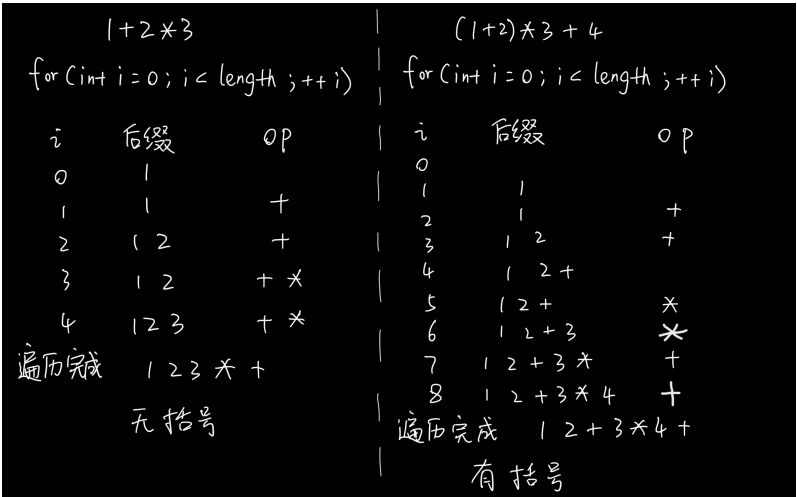 1+2*3
for(int i=0; i< length ; ++i)
i 后缀 op
0 1
1 1 +
2 1 2 +
3 1 2 + *
4 1 2 3 + *
遍历完成 1 2 3 * +
无括号
(1+2)*3+4
for(int i=0; i< length ; ++i)
i 后缀 op
0
1 1
2 1 +
3 1 2 +
4 1 2 +
5 1 2 + *
6 1 2 + 3 *
7 1 2 + 3 * +
8 1 2 + 3 * 4 +
遍历完成 1 2 + 3 * 4 +
有括号